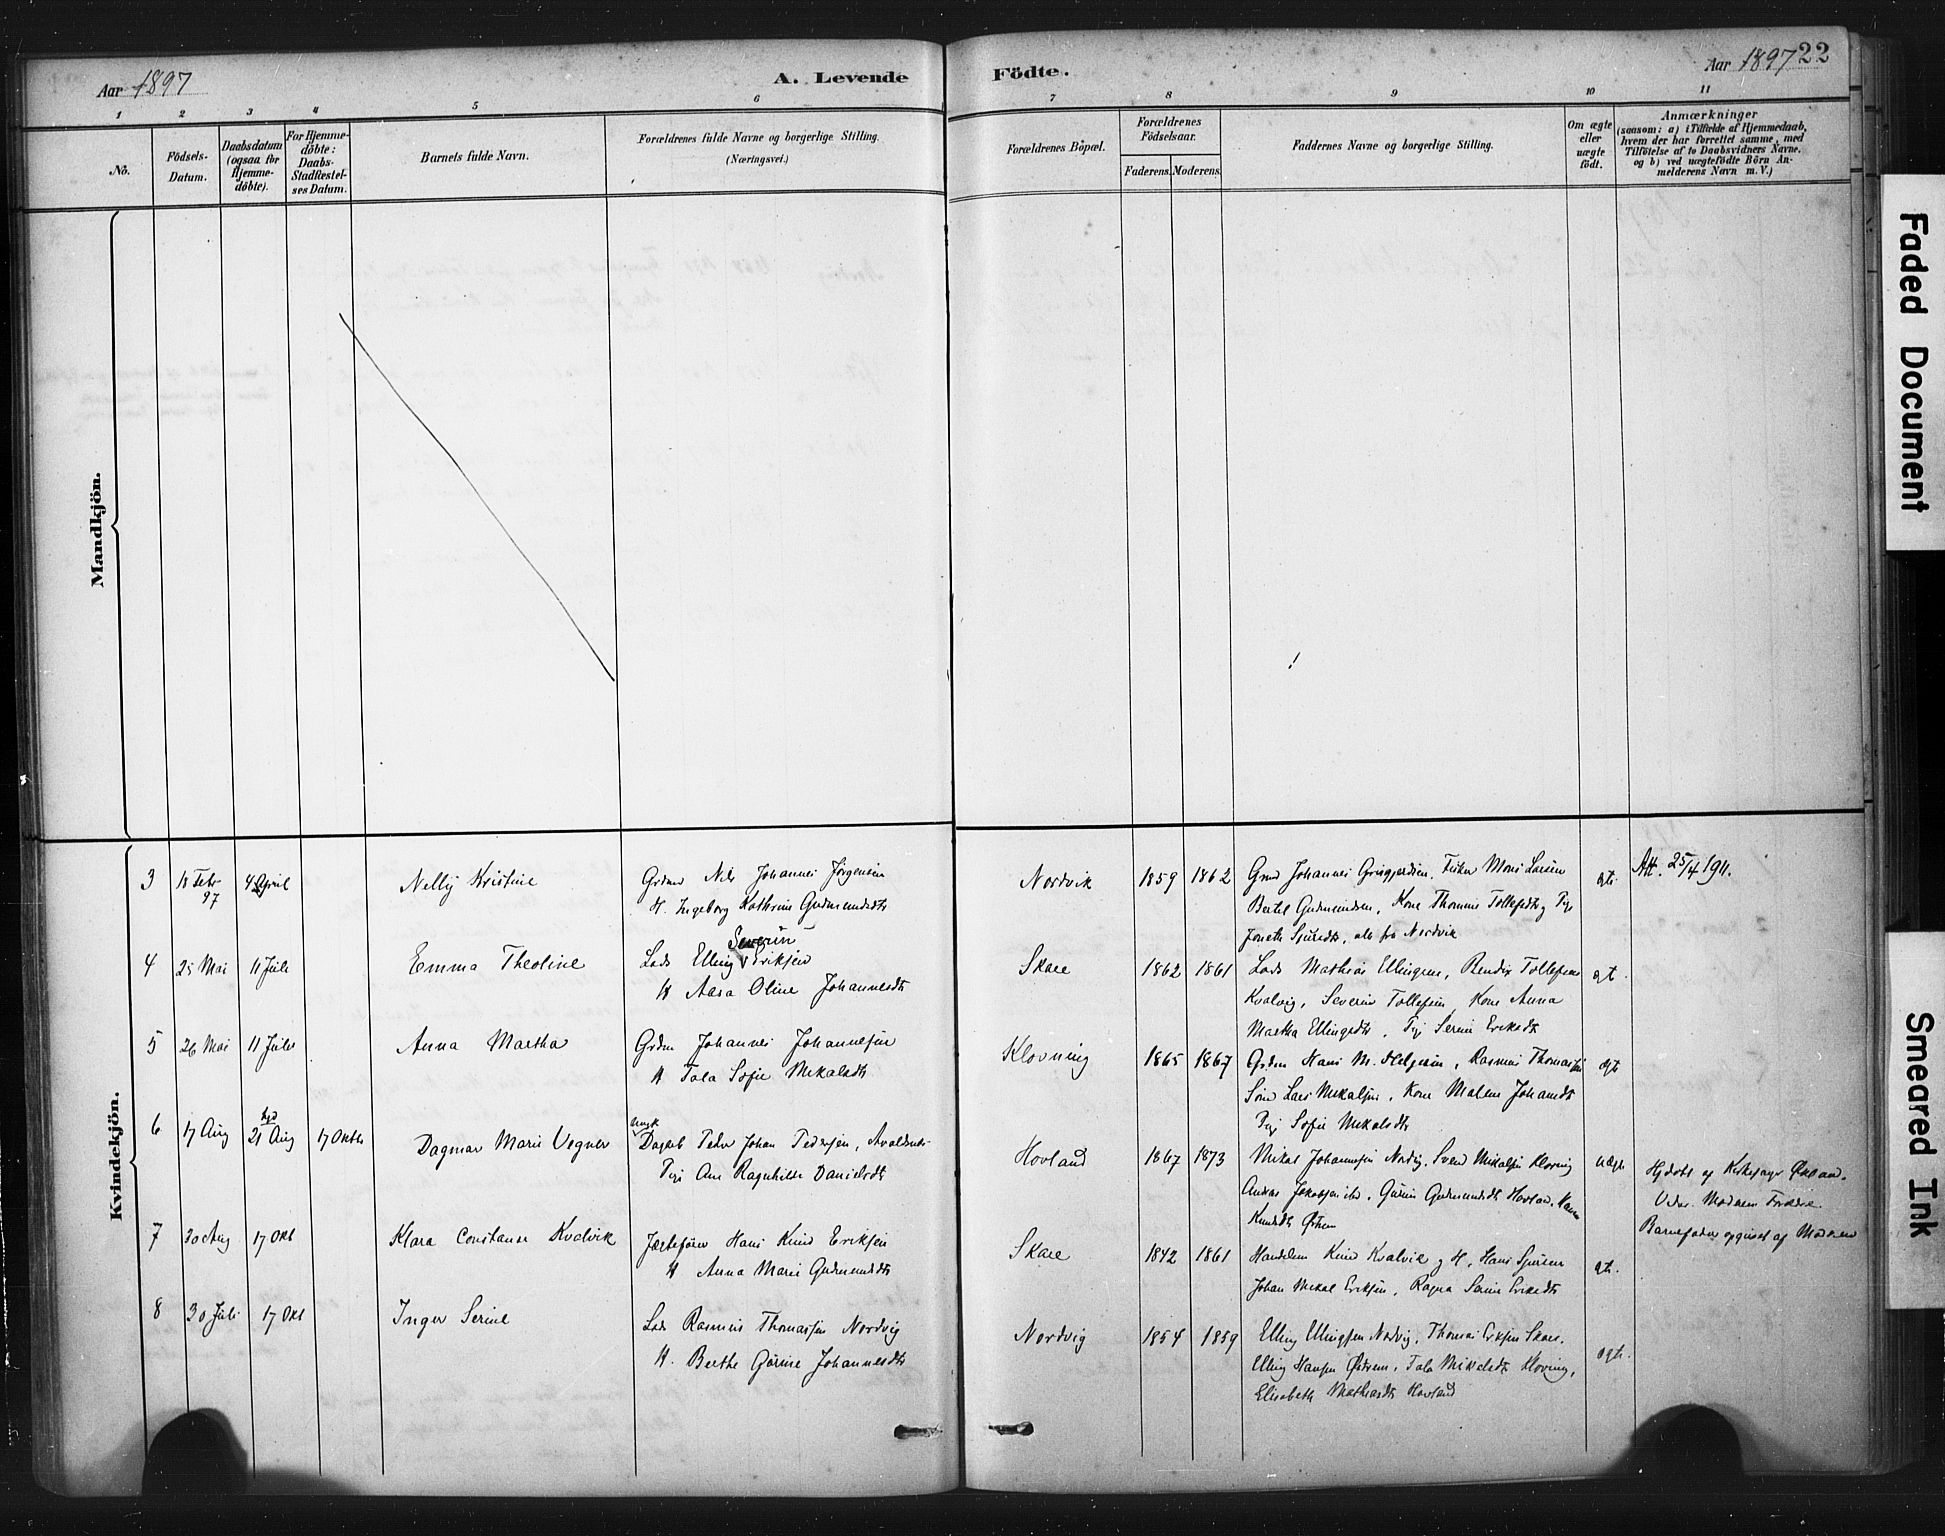 Aar 1897
A. Levende
Födte.
Aar 1897
22
1 2 3 4 5 6 7 8 9 10 11
No.
Födsels-
Datum.
Daabsdatum
(ogsaa for
Hjemme-
döbte).
For Hjemme-
döbte:
Daabs-
Stadfæstel-
ses Datum.
Barnets fulde Navn.
Forældrenes fulde Navne og borgerlige Stilling.
(Næringsvei.)
Forældrenes Böpæl.
Forældrenes
Födselsaar.
Faderens.
Moderens.
Faddernes Navne og borgerlige Stilling.
Om ægte
eller
uægte
födt.
Anmærkninger
(saasom: a) i Tilfælde af Hjemmedaab,
hvem der har forrettet samme, med
Tilföielse af to Daabsvidners Navne.
og b) ved uægtefödte Börn An-
melderens Navn m. V.)
Mandkjön.
Kvindekjön.
3 18 Febr 97 4 April Nelly Kristine
Grdmd Nils Johannes Jørgensen
H. Ingeborg Kathrine Gudmundsdtr
Nordvik 1859 1862
Johannes Fisker Mons Larsen
Bertel Gudmundsen, Kone Thomine Tollefsdtr
Sjursdtr, alle fra Nordvik
Att. 25/4 1911.
4 25 Mai 11 Juli Emma Theoline
Severin
Lods Elling Eriksen
H Aasa Oline Johannesdtr
Skare 1862 1861
Lods Mathias Ellingsen, Bendix Tollefsen
Kvalvig, Severin Tollefsen, Kone Anna
Martha Ellingsdtr, Pige Serine Eriksdtr
ægt.
5 26 Mai 11 Juli Anna Martha
Grdm Johannes Johannesen
H Tala Sofie Mikalsdtr
Klovning 1865 1867
Grdm Hans M. Helgesen, Rasmus Thomassen
Lars Mikalsen, Kone Malene Johansdtr
Pige Sofie Mikalsdtr
ægt
6 17 Aug 21 Aug 17 Oktbr Dagmar Marie Vegner
Ungk
Dagarb Peder Johan Pedersen, Avaldsnes
Pige Ane Ragnhilde Danielsdtr
Hovland 1867 1873
Mikal Johannesen Nordvig, Svend Mikalsen Klovning
Andreas Gurine Gudmundsdtr Hovland
Knudsdtr Østrem
uægte
Hjdøbt af Kirkesanger Økland.
Moderens Forældre.
Barnefader opgivet af Moderen
7 30 Aug 17 Okt Klara Constanse Kvalvik
Jægtefører Hans Knud Eriksen
H Anna Marie Gudmundsdtr
Skare 1842 1861
Handelsm Knud Kvalvik og H, Hans Sjursen
Johan Mikal Eriksen, Ragna Serine Eriksdtr
ægt.
8 30 Juli 17 Okt Inger Serine
Lods Rasmus Thomassen Nordvig
H. Berthe Gurine Johannesdtr
Nordvig 1854 1859
Elling Ellingsen Nordvig, Thomas Eriksen Skare,
Elling Hansen Østrem, Tala Mikalsdtr Klovning,
Elisabeth Mathiasdtr Hovland
ægte.
Faded Document
Smeared Ink